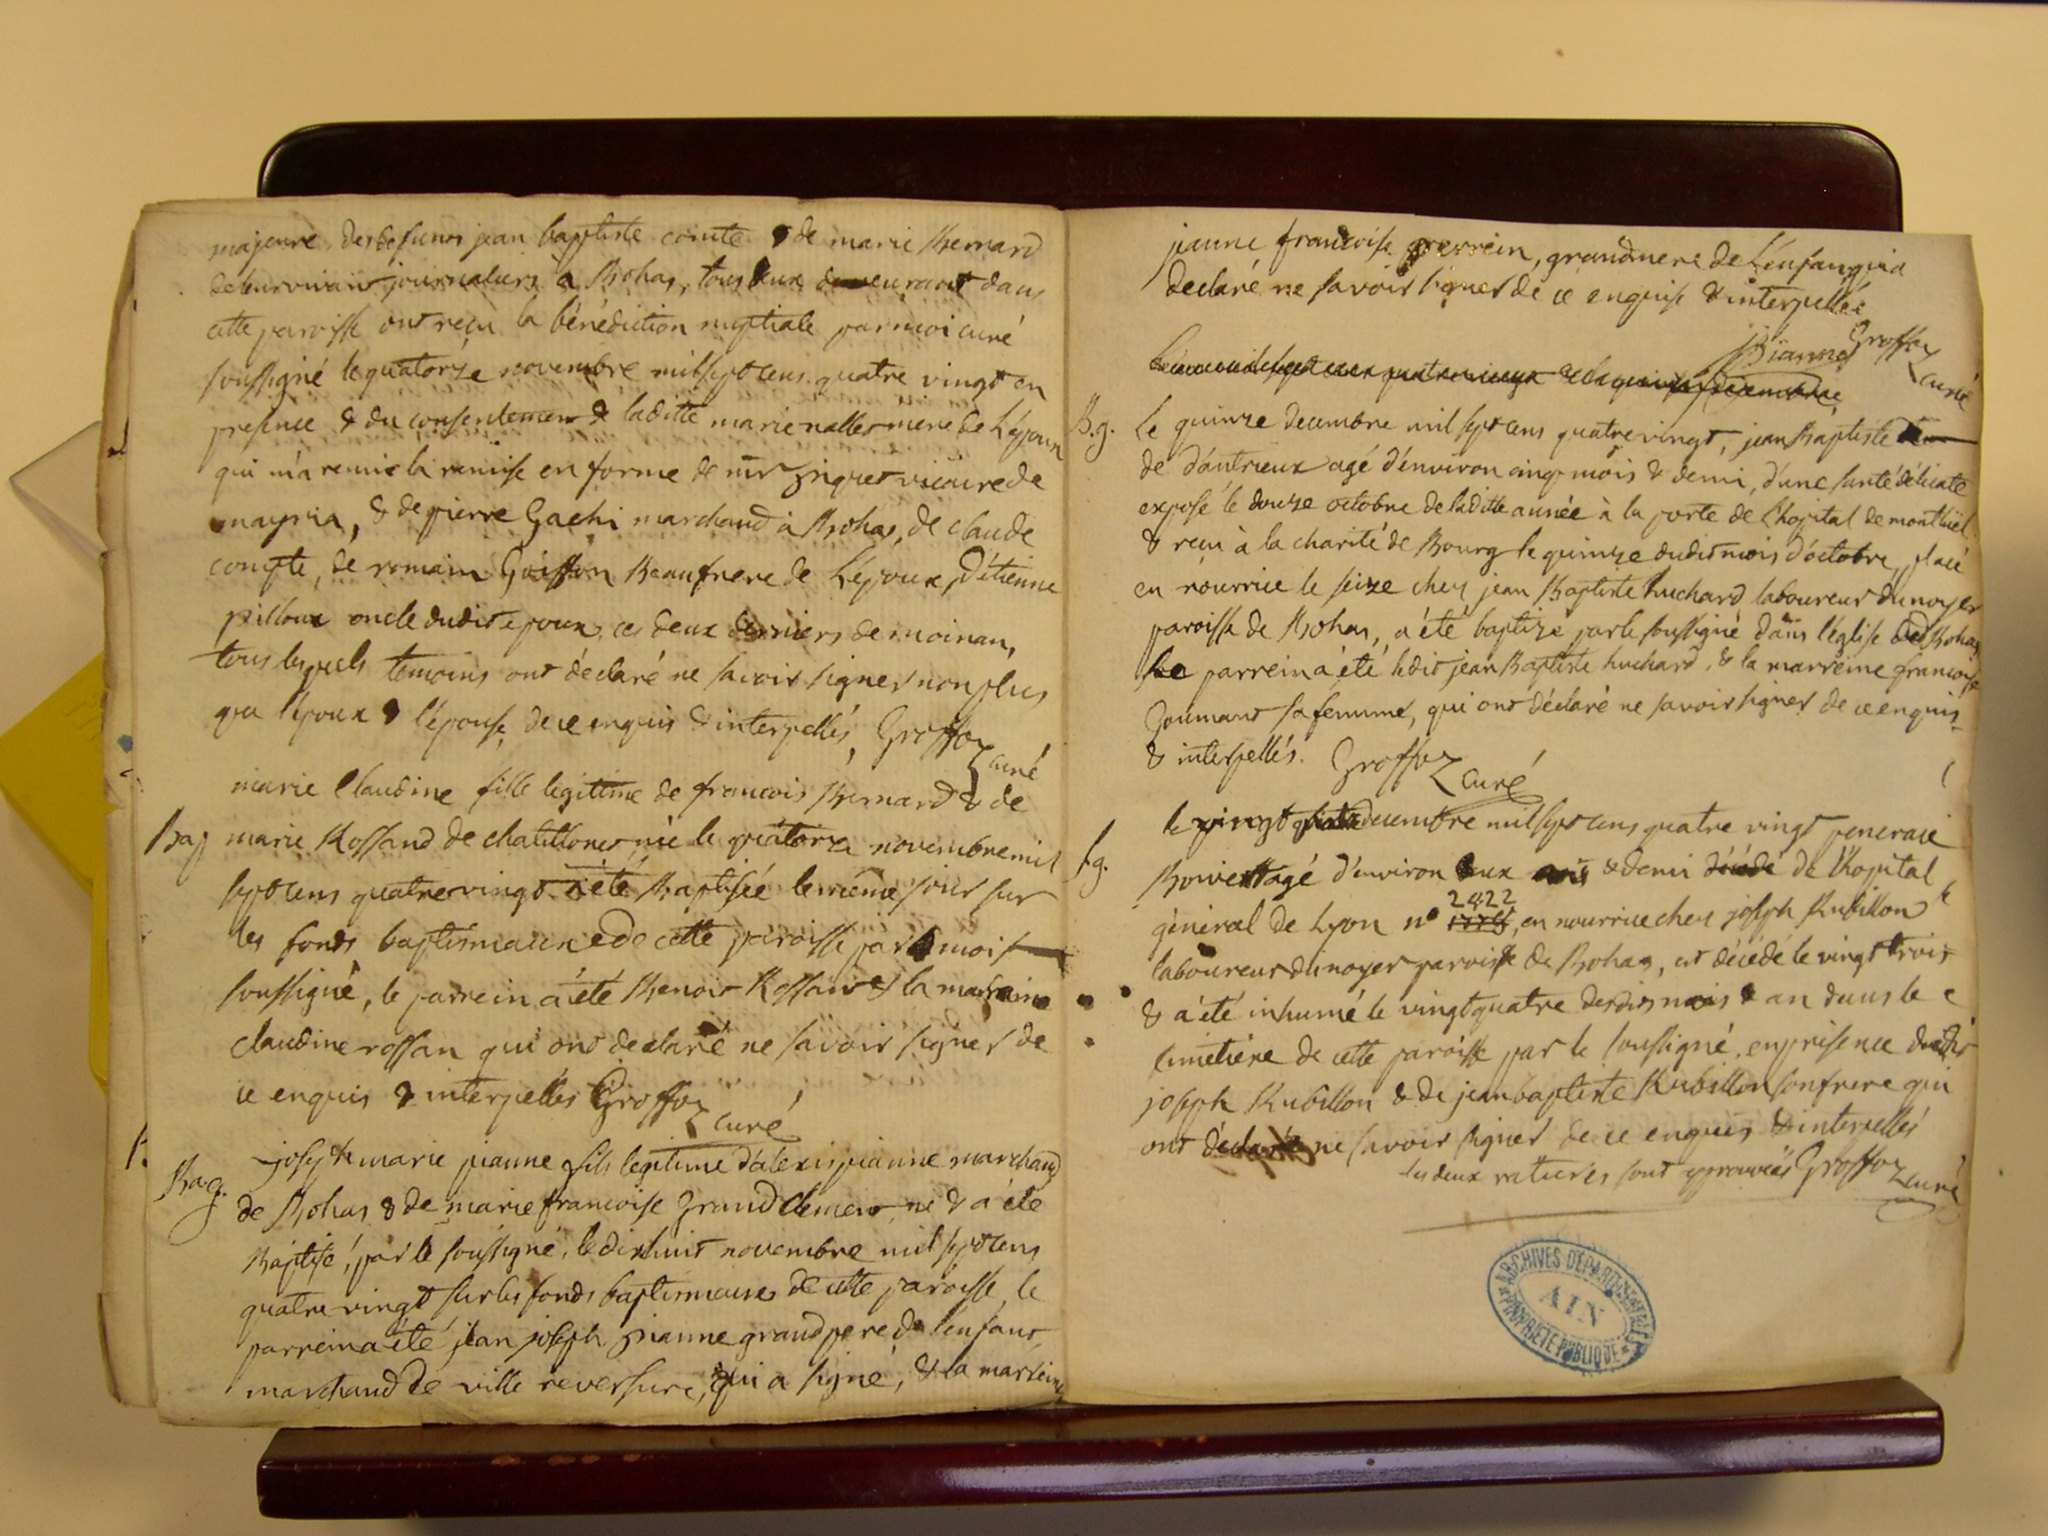 majeure des defunts jean baptiste comte & de marie Bernard
de leur vivant journaliers à Bohas, tous deux demeurant dans
cette paroisse ont reçu la bénédiction nuptiale par moi curé
soussigné le quatorze novembre mil sept cens quatre vingt en
presence & du consentement de laditte marie nallet mere de l'époux
qui m'a remis la remise en forme de mr vicaire de
& de pierre Gachi marchand à Bohas, de claude
compte, de romain Goiffon Beaufrere de l'époux, d'étienne
pilloux oncle dudit epoux, ces deux derniers de moinan,
tous lesquels temoins ont déclaré ne savoir signer non plus
que l'époux & l'épouse, de ce enquis & interpellés, Groffoz
curé
marie Claudine fille legitime de francois Bernard & de
Bap marie Rossand de chatillonet née le quatorze novembre mil
sept cens quatre vingt a été Baptisée le même jour sur
les fonds baptismaux de cette paroisse par moi
soussigné, le parrein a été Benoit Rossand & la marraine
claudine rossan qui ont declaré ne savoir signer de
ce enquis & interpellés Groffoz
curé
joseph marie pianne fils legitime d'alexis pianne marchand
Bag. de Bohas & de marie francoise Grand Clement, né & a été
Baptisé, par le soussigné, le dixhuit novembre mil sept cens
quatre vingt sur les fonds baptismaux de cette paroisse, le
parrein a été jean joseph pianne grand pere de l'enfant,
marchand de ville reversure, qui a signé, & la marreine
jeanne francoise perrein, grandmere de L'enfant qui a
declaré ne savoir signer de ce enquise & interpellée
pianne Groffoz
curé
B.g. Le quinze decembre mil sept cens quatre vingt, jean Baptiste
de Dautrieux agé d'environ cinq mois & demi, d'une santé délicate
exposé le douze octobre de laditte année à la porte de l'hopital de montluël
& reçu à la charité de Bourg le quinze dudit mois d'octobre, placé
en nourrice le seize chez jean Baptiste huchard laboureur du noyer
paroisse de Bohas, a été baptizé par le soussigné dans l'église de Bohas
Le parrein a été ledit jean Baptiste huchard, & la marreine francoise
Goumant sa femme, qui ont déclaré ne savoir signer de ce enquis
& interpellés. Groffoz
curé
le vingt quatre decembre mil sept cens quatre vingt
S.g. agé d'environ deux ans & demi de l'hopital
général de Lyon n° 2422, en nourrice chez joseph Rubillon
laboureur du noyer paroisse de Bohas, est décédé le vingt trois
& a été inhumé le vingt quatre desdits mois & an dans le
cimetiere de cette paroisse par le soussigné, en presence dudit
joseph Rubillon & de jean baptiste Rubillon son frere qui
ont déclaré ne savoir signer de ce enquis & interpellés
les deux ratures sont approuvées Groffoz curé
ARCHIVES DÉPARTEMENTALES
AIN
PROPRIÉTÉ PUBLIQUE